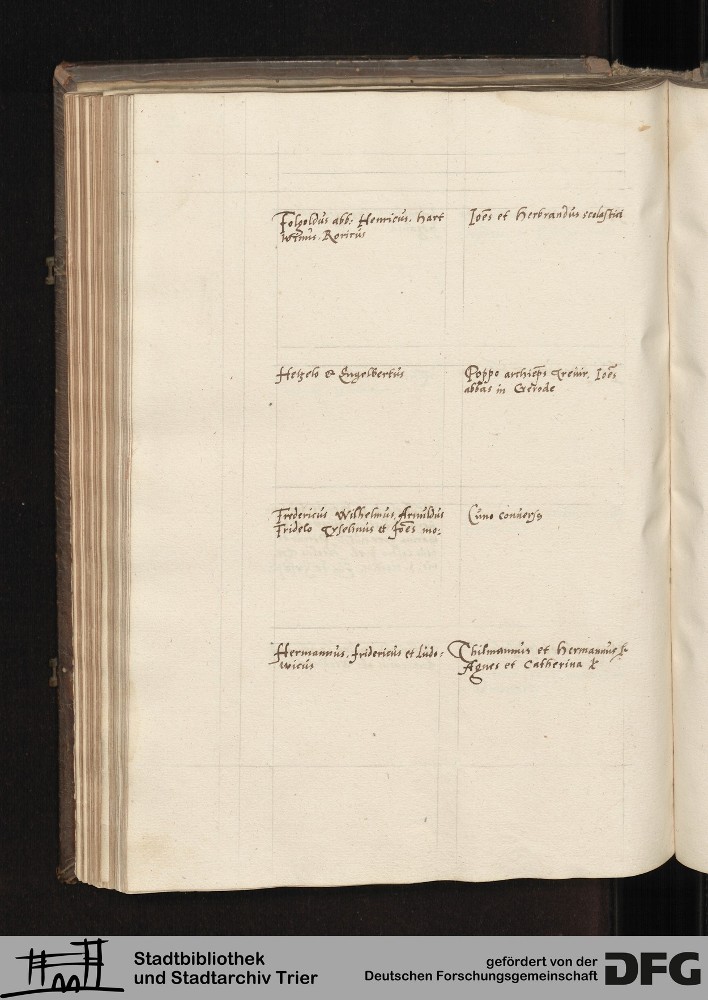 Folgoldus abb: Henricus. Hart
winus. Roricus
Ioēs et Herbrandus scolastici
Hetzelo & Engelbertus
Poppo archiēps Trevir. Ioēs
abbas in Gerode
Fredericus Wilhelmus, Arnuldus
Fridelo Tyselmus et Joēs mo:
Cuno convers9
Hermannus. fridericus et Ludo:
wicus
Thilmannus et Hermannus
Agnes et Catherina
Stadtbibliothek
und Stadtarchiv Trier
gefördert von der
Deutschen Forschungsgemeinschaft
DFG